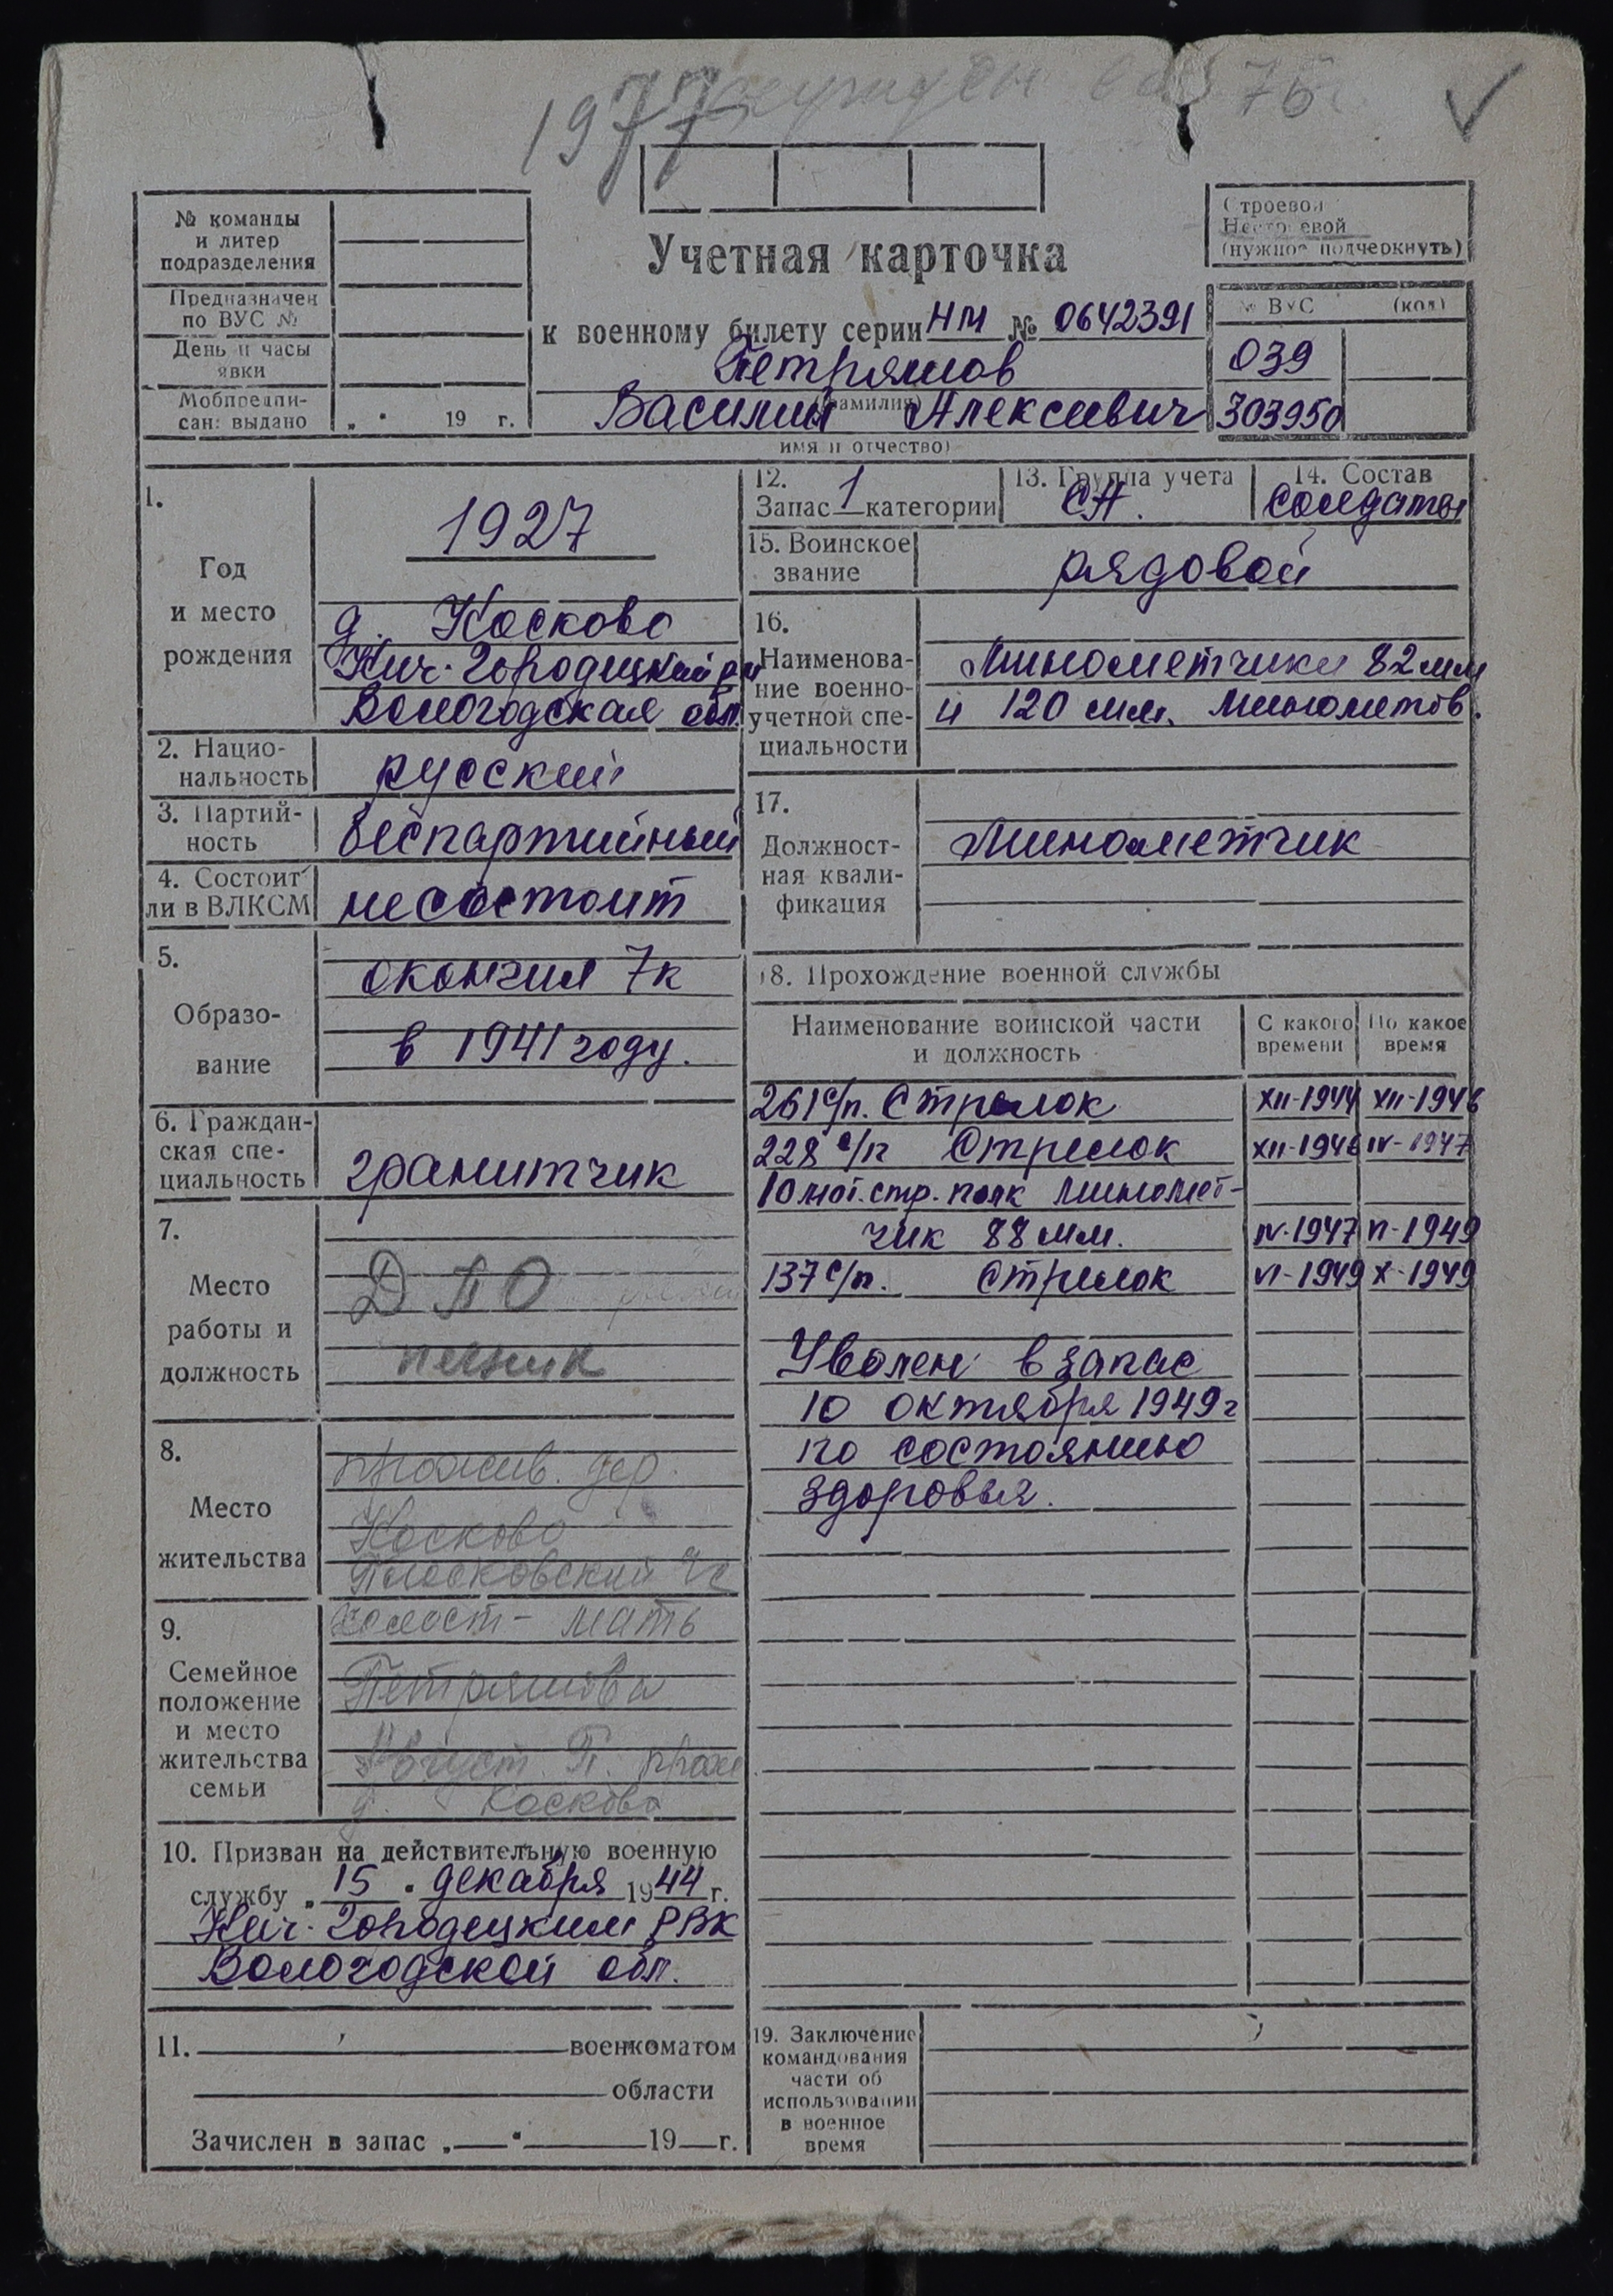 1977 76
№ команды
и литер
подразделения
Предназначен
по ВУС №
День и часы
явки
Мобпредпи-
сан: выдано
„ " 19 г.
Учетная карточка
к военному билету серии НМ № 0642391
Петряшов
(фамилия)
Василий Алексеевич
имя и отчество)
Строевой
Нестроевой
(нужное подчеркнуть)
№ ВУС (код)
039
303950
1.
Год
и место
рождения
1927
д. Косково
Кич-Городецкий р-н
Вологодская обл.
2. Нацио-
нальность
русский
3. Партий-
ность
беспартийный
4. Состоит
ли в ВЛКСМ
не состоит
5.
Образо-
вание
окончил 7к
в 1941 году.
6. Граждан-
ская спе-
циальность
гранитчик
7.
Место
работы и
должность
ДПО
печник
8.
Место
жительства
прожив. дер.
Косково
Плосковский
9.
Семейное
положение
и место
жительства
семьи
холост - мать
Петряшова
Август. П. прож
д. Косково
10. Призван на действительную военную
службу „ 15 " декабря 1944 г.
Кич-Городецким РВК
Вологодской обл.
11. военкоматом
области
Зачислен в запас „ " 19 г.
12.
Запас 1 категории
13. Группа учета
СА.
14. Состав
солдаты
15. Воинское
звание
рядовой
16.
Наименова-
ние военно-
учетной спе-
циальности
Минометчики 82 мм
и 120 мм. минометов.
17.
Должност-
ная квали-
фикация
Минометчик
18. Прохождение военной службы
Наименование воинской части
и должность
С какого
времени
По какое
время
261 с/п. Стрелок XII-1944 XII-1946
228 с/п Стрелок XII-1946 IV-1947
10 мот. стр. полк миномет-
чик 88 мм. IV-1947 VI-1949
137 с/п. Стрелок VI-1949 X-1949
Уволен в запас
10 октября 1949 г
по состоянию
здоровья.
19. Заключение
командования
части об
использовании
в военное
время